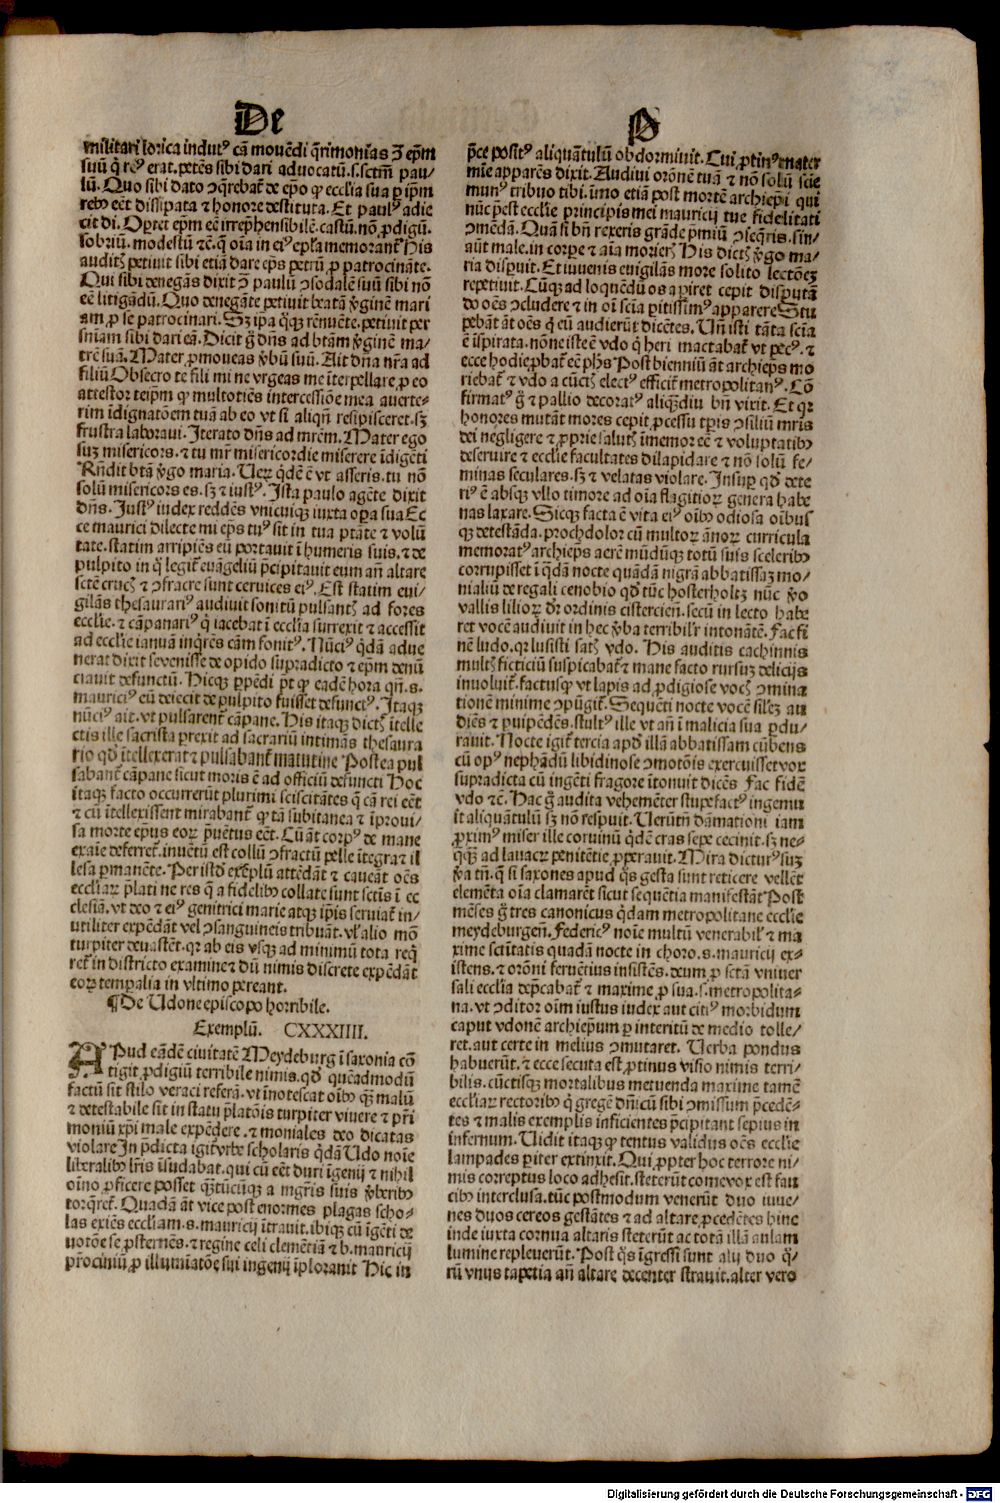 De
militari lorica indutꝰ cā mouēdi q̄rimonias ꝫ ep̄m
suū q̄ reꝰ erat. petēs sibi dari aduocatū. s. sctm̄ pau/
lū. Quo sibi dato ꝯq̄rebat̄ de ep̄o ꝙ ecclia sua ꝑ ip̄m
rebꝰ eēt dissipata ⁊ honore destituta. Et paulꝰ adie
cit di. Oꝑtet ep̄m eē irrep̄hensibilē. castū. nō ꝓdigū.
sobriū. modestū ⁊cͣ. q̄ oīa in eiꝰ epl̄a memorant̄ His
auditꝭ petiuit sibi etiā dare ep̄s petrū ꝓ patrocināte.
Qui sibi denegās dixit ꝯ̄ paulū ꝯsodalē suū sibi nō
eē litigādū. Quo denegāte petiuit beatā v̓ginē mari
am. ꝓ se patrocinari. Sꝫ ip̄a q̄qꝫ rēnuēte. petiuit per
sn̄iam sibi dari eā. Dicit ḡ dn̄s ad btām v̓ginē ma/
trē suā. Mater ꝓmoueas v̓bū suū. Ait dn̄a nr̄a ad
filiū Obsecro te fili mi ne vrgeas me īterpellare. ꝓ eo
attestor teip̄m ꝙ multotiēs intercessiōe mea auerte/
rim īdignatōem tuā ab eo vt si aliqn̄ resipisceret. sꝫ
frustra laboraui. Iterato dn̄s ad mr̄em. Mater ego
suꝫ misericors. ⁊ tu mr̄ misericordie miserere īdigēti
Rn̄dit btā v̓go maria. Veꝝ q̄dē ē vt asseris. tu nō
solū misericors es. sꝫ ⁊ iustꝰ. Ista paulo agēte dixit
dn̄s. Iustꝰ iudex reddēs vnicuiqꝫ iuxta oꝑa sua Ec
ce maurici dilecte mi ep̄s tuꝰ sit in tua ptāte ⁊ volū
tate. statim arripiēs eū portauit ī humeris suis. ⁊ de
pulpito in q̄ legit̄ euāgeliū p̄cipitauit eum añ altare
sctē crucꝭ ⁊ ꝯfracte sunt ceruices eiꝰ. Est statim eui/
gilās thesaurariꝰ audiuit sonitū pulsantꝭ ad fores
ecclīe. ⁊ cāpanariꝰ q̄ iacebat ī ecclīa surrexit ⁊ accessit
ad ecclīe ianuā inq̄rēs cām sonitꝰ. Nūciꝰ q̄dā adue
nerat dixit se venisse de opido supradicto ⁊ ep̄m denū
ciauit defunctū. Hicqꝫ ꝑpēdi pt̄ ꝙ eadē hora qn̄. s.
mauriciꝰ eū deiecit de pulpito fuisset defunctꝰ. Itaqꝫ
nūciꝰ ait. vt pulsarent̄ cāpane. His itaqꝫ dictꝭ ītelle
ctis ille sacrista ꝑrexit ad sacrariū intimās thesaura
rio qd̓ ītellexerat ⁊ pulsabant̄ matutine Postea pul
sabant̄ cāpane sicut moris ē ad officiū defuncti Hoc
itaqꝫ facto occurrerūt plurimi sciscitātes q̄ cā rei eēt
⁊ cū ītellexissent mirabant̄ ꝙ tā subitanea ⁊ īproui/
sa morte ep̄us eoꝝ p̄uētus eēt. Cū āt corpꝰ de mane
exaīe deferret̄. inuētū est collū ꝯfractū pelle ītegra ⁊ il
lesa ꝑmanēte. Per istd̓ exēplū attēdāt ⁊ caueāt oēs
eccliaꝝ p̄lati ne res q̄ a fidelibꝰ collate sunt sctīs ī ec
clesiā. vt deo ⁊ eiꝰ genitrici marie atqꝫ ip̄is seruiat̄ in/
utiliter expēdāt vel ꝯsanguineis tribuāt. vl̓ alio mō
turpiter deuastēt. qꝛ ab eis vsqꝫ ad minimū tota req̄
ret̄ in districto examine ⁊ dū nimis discrete expēdāt
eoꝝ temꝑalia in vltimo pereant.
¶ De Udone episcopo horribile.
Exemplū. CXXXIIII.
APud eādē ciuitatē Meydeburg ī saxonia cō
tigit ꝓdigiū terribile nimis. qd̓ quēadmodū
factū sit stilo veraci referā. vt īnotescat oībꝰ qꝫ malū
⁊ detestabile sit in statu p̄latōis turpiter viuere ⁊ pr̄i
moniū xp̄i male expēdere. ⁊ moniales deo dicatas
violare In p̄dicta igit̄ vrbe scholaris q̄dā Udo noīe
liberalibꝰ lr̄is īsudabat. qui cū eēt duri īgenij ⁊ nihil
oīno ꝓficere posset qꝫtūcūqꝫ a mgr̄is suis v̓beribꝰ
torq̄ret̄. Quadā āt vice post enormes plagas scho/
las exiēs eccliam. s. mauricij ītrauit. ibiqꝫ cū īgēti de
uotōe se ꝓsternēs. ⁊ regine celi clemētiā ⁊ b. mauricij
p̄rociniū ꝓ illumiatōe sui ingenij īplorauit Hic in
p̄ce positꝰ aliquātulū obdormiuit. Cui ꝓtinꝰ mater
mīe apparēs dixit. Audiui orōnē tuā ⁊ nō solū sciē
munꝰ tribuo tibi. īmo etiā post mortē archiep̄i qui
nūc p̄est ecclīe principis mei mauricij tue fidelitati
ꝯmēdā. Quā si bn̄ rexeris grāde p̄miū ꝯseq̄ris. sin/
aūt male. in corꝑe ⁊ aīa morierꝭ His dictꝭ v̓go ma/
ria disparuit. Et iuuenis euigilās more solito lectōeꝫ
repetiuit. Cūqꝫ ad loquēdū os aꝑiret cepit disputā
do oēs ꝯcludere ⁊ in oī sciā ꝑitissimꝰ apparere Stu
pebāt āt oēs q̄ eū audierūt dicētes. Vn̄ isti tāta scīa
ē īspirata. nōne iste ē vdo q̄ heri mactabat̄ vt pecꝰ. ⁊
ecce hodie ꝓbat̄ eē ph̄s Post bienniū āt archiep̄s mo
riebat̄ ⁊ vdo a cūctꝭ electꝰ efficit̄ metropolitanꝰ. Cō
firmatꝰ ḡ ⁊ pallio decoratꝰ aliqꝫdiu bn̄ vixit. Et qꝛ
honores mutāt mores cepit ꝓcessu tꝑis ꝯsiliū mr̄is
dei negligere ⁊ ꝓprie salutꝭ īmemor eē ⁊ voluptatibꝰ
deseruire ⁊ ecclīe facultates dilapidare ⁊ nō solū fe/
minas seculares. sꝫ ⁊ velatas violare. Insuꝑ qd̓ dete
riꝰ ē absqꝫ vllo timore ad oīa flagitioꝝ genera habe
nas laxare. Sicqꝫ facta ē vita eiꝰ oībꝰ odiosa oībus
qꝫ detestāda. prochdolor cū multoꝝ ānoꝝ curricula
memoratꝰ archiep̄s aerē mūdūqꝫ totū suis sceleribꝰ
corrupisset ī q̄dā nocte quādā nigrā abbatissaꝫ mo/
nialiū de regali cenobio qd̓ tūc hosterholtz nūc v̓o
vallis lilioꝝ dr̄ ordinis cistercien̄. secū in lecto habe
ret vocē audiuit in hec v̓ba terribilr̄ intonātē. Fac fi
nē ludo. qꝛ lusisti satꝭ vdo. His auditis cachinnis
multꝭ ficticiū suspicabat̄ ⁊ mane facto rursuꝫ delicijs
inuoluit̄. factusqꝫ vt lapis ad ꝓdigiose vocꝭ ꝯmina
tionē minime ꝯpūgit̄. Sequēti nocte vocē sil̓eꝫ au
diēs ⁊ ꝑuipēdēs. stultꝰ ille vt añ ī malicia sua ꝑdu/
rauit. Nocte igit̄ tercia apd̓ illā abbatissam cūbens
cū opꝰ nephādū libidinose ꝯmotōis exercuisset vox
supradicta cū ingēti fragore ītonuit dicēs Fac finē
vdo ⁊cͣ. Hac ḡ audita vehemēter stupefactꝰ ingemu
it aliquātulū sꝫ nō resipuit. Verūtn̄ dānationi iam
ꝓximꝰ miser ille coruinū q̄dē cras sepe cecinit. sꝫ ne/
q̄qꝫ ad lauacꝝ penitētie ꝓperauit. Mira dicturꝰ suꝫ
v̓a tn̄. q̄ si saxones apud q̄s gesta sunt reticere vellēt
elemēta oīa clamarēt sicut sequētia manifestāt Post
mēses ḡ tres canonicus q̄dam metropolitane ecclīe
meydeburgen̄. Federicꝰ noīe multū venerabil̓ ⁊ ma
xime scītitatis quadā nocte in choro. s. mauricij ex/
istens. ⁊ orōni feruētius insistēs. deum ꝓ sctā vniuer
sali ecclīa dep̄cabat̄ ⁊ maxime ꝓ sua. s. metropolita/
na. vt ꝯditor oīm iustus iudex aut citiꝰ morbidum
caput vdonē archiep̄um ꝑ interitū de medio tolle/
ret. aut certe in melius ꝯmutaret. Verba pondus
habuerūt. ⁊ ecce secuta est ꝓtinus visio nimis terri/
bilis. cūctisqꝫ mortalibus metuenda maxime tamē
eccliaꝝ rectoribꝰ q̄ gregē dn̄icū sibi ꝯmissum p̄cedē/
tes ⁊ malis exemplis inficientes p̄cipitant sepius in
infernum. Vidit itaqꝫ ꝙ ventus validus oēs ecclīe
lampades ꝑiter extinxit. Qui ꝓpter hoc terrore ni/
mis correptus loco adhesit. steterūt come vox est fau
cibꝰ interclusa. tūc postmodum venerūt duo iuue/
nes duos cereos gestātes ⁊ ad altare ꝓcedētes hinc
inde iuxta cornua altaris steterūt ac totā illā aulam
lumine repleuerūt. Post q̄s īgressi sunt alij duo q̄/
rū vnus tapetia añ altare decenter strauit. alter vero
Digitalisierung gefördert durch die Deutsche Forschungsgemeinschaft - DFG